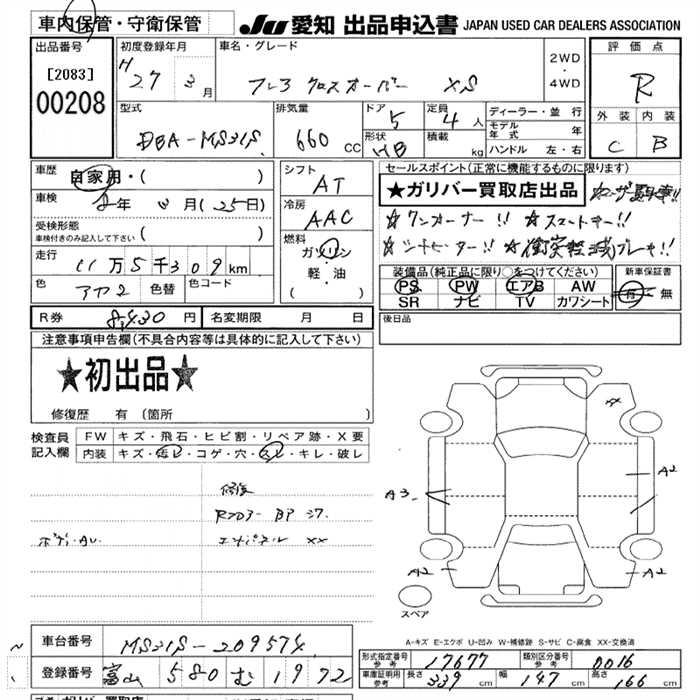 車内保管・守衛保管
JU 愛知 出品申込書 JAPAN USED CAR DEALERS ASSOCIATION
出品番号
[2083]
00208
初度登録年月
H 27 3月
車名・グレード
フレア クロスオーバー XS
2WD
・
4WD
評価点
R
外装 内装
C B
型式
DBA-MS31S
排気量
660 CC
ドア
5
形状
HB
定員
4人
積載
kg
ディーラー・並行
モデル年式 年
ハンドル 左・右
車歴
自家用・( )
車検
8年 3月 (25日)
受検形態
車検付きのみ記入して下さい ( )
走行
11万5千309km
色 色替 色コード
アカ2
シフト
AT
冷房
AAC
燃料
ガソリン
軽・油
( )
セールスポイント(正常に機能するものに限ります)
★ガリバー買取店出品
☆ワンオーナー!! ☆スマートキー!!
☆シートヒーター!! ☆衝突軽減ブレーキ!!
装備品(純正品に限り○をつけてください)
PS PW エアB AW
SR ナビ TV カワシート
新車保証書
有・無
R券 8,430円
名変期限 月 日
後日品
注意事項申告欄(不具合内容等は具体的に記入して下さい)
★初出品★
修復歴 有(箇所 )
検査員
記入欄
FW キズ・飛石・ヒビ割・リペア跡・X要
内装 キズ・汚レ・コゲ・穴・スレ・キレ・破レ
修復
ボディAU
エンドパネル XX
A3
A2
A2
A2
スペア
A-キズ E-エクボ U-凹み W-補修跡 S-サビ C-腐食 XX-交換済
車台番号 MS31S-209574
登録番号 富山 580 む 1972
形式指定番号
参考
17677
類別区分番号
参考
0016
車庫証明用
参考
長さ 339cm 幅 147cm 高さ 166cm